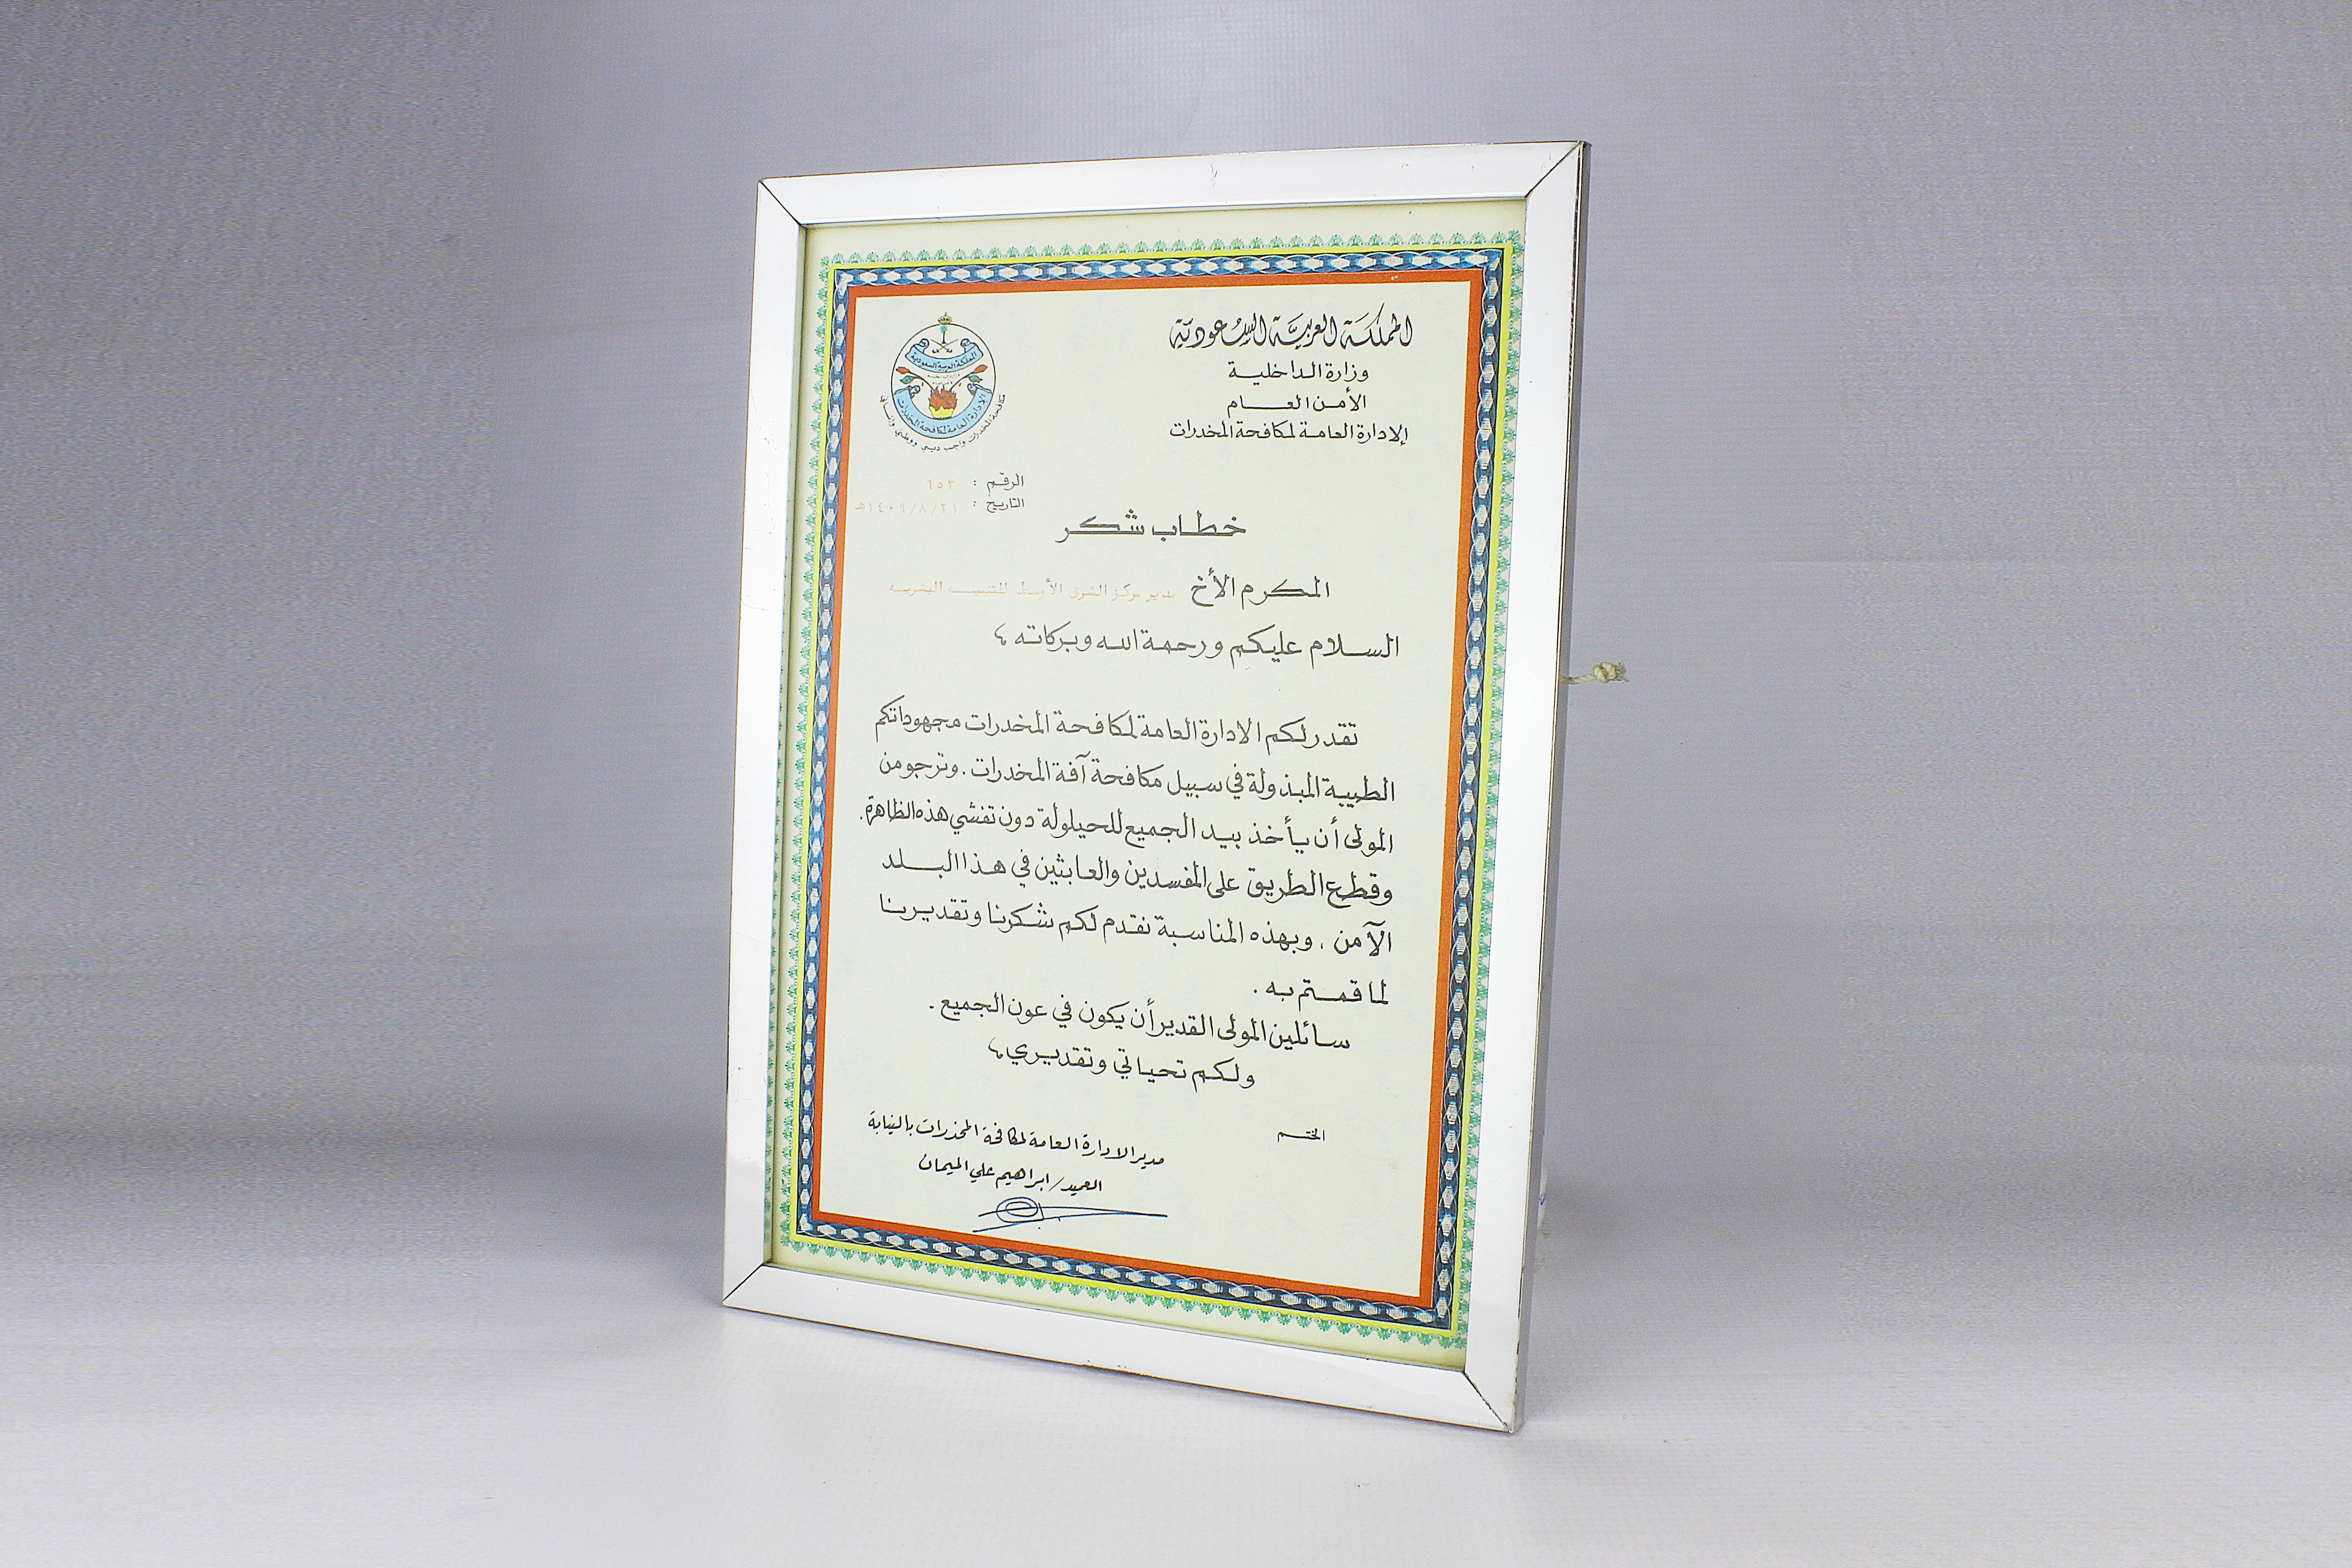 المملكة العربية السعودية
وزارة الداخلية
الأمن العام
الإدارة العامة لمكافحة المخدرات
المملكة العربية السعودية
الإدارة العامة لمكافحة المخدرات
مكافحة المخدرات واجب ديني ووطني وإنساني
الرقم : ٦٥٣
التاريخ : ١٤٠٩/٨/٢١هـ
خطاب شكر
المكرم الأخ مدير مركز الشرق الأوسط للتنمية البشرية
السلام عليكم ورحمة الله وبركاته ،
تقدر لكم الادارة العامة لمكافحة المخدرات مجهوداتكم
الطيبة المبذولة في سبيل مكافحة آفة المخدرات . وترجو من
المولى أن يأخذ بيد الجميع للحيلولة دون تفشي هذه الظاهرة .
وقطع الطريق على المفسدين والعابثين في هذا البلد
الآمن . وبهذه المناسبة نقدم لكم شكرنا وتقديرنا
لما قمتم به .
سائلين المولى القدير أن يكون في عون الجميع .
ولكم تحياتي وتقديري ،
الختم
مدير الادارة العامة لمكافحة المخدرات بالنيابة
العميد/ ابراهيم علي الميمان